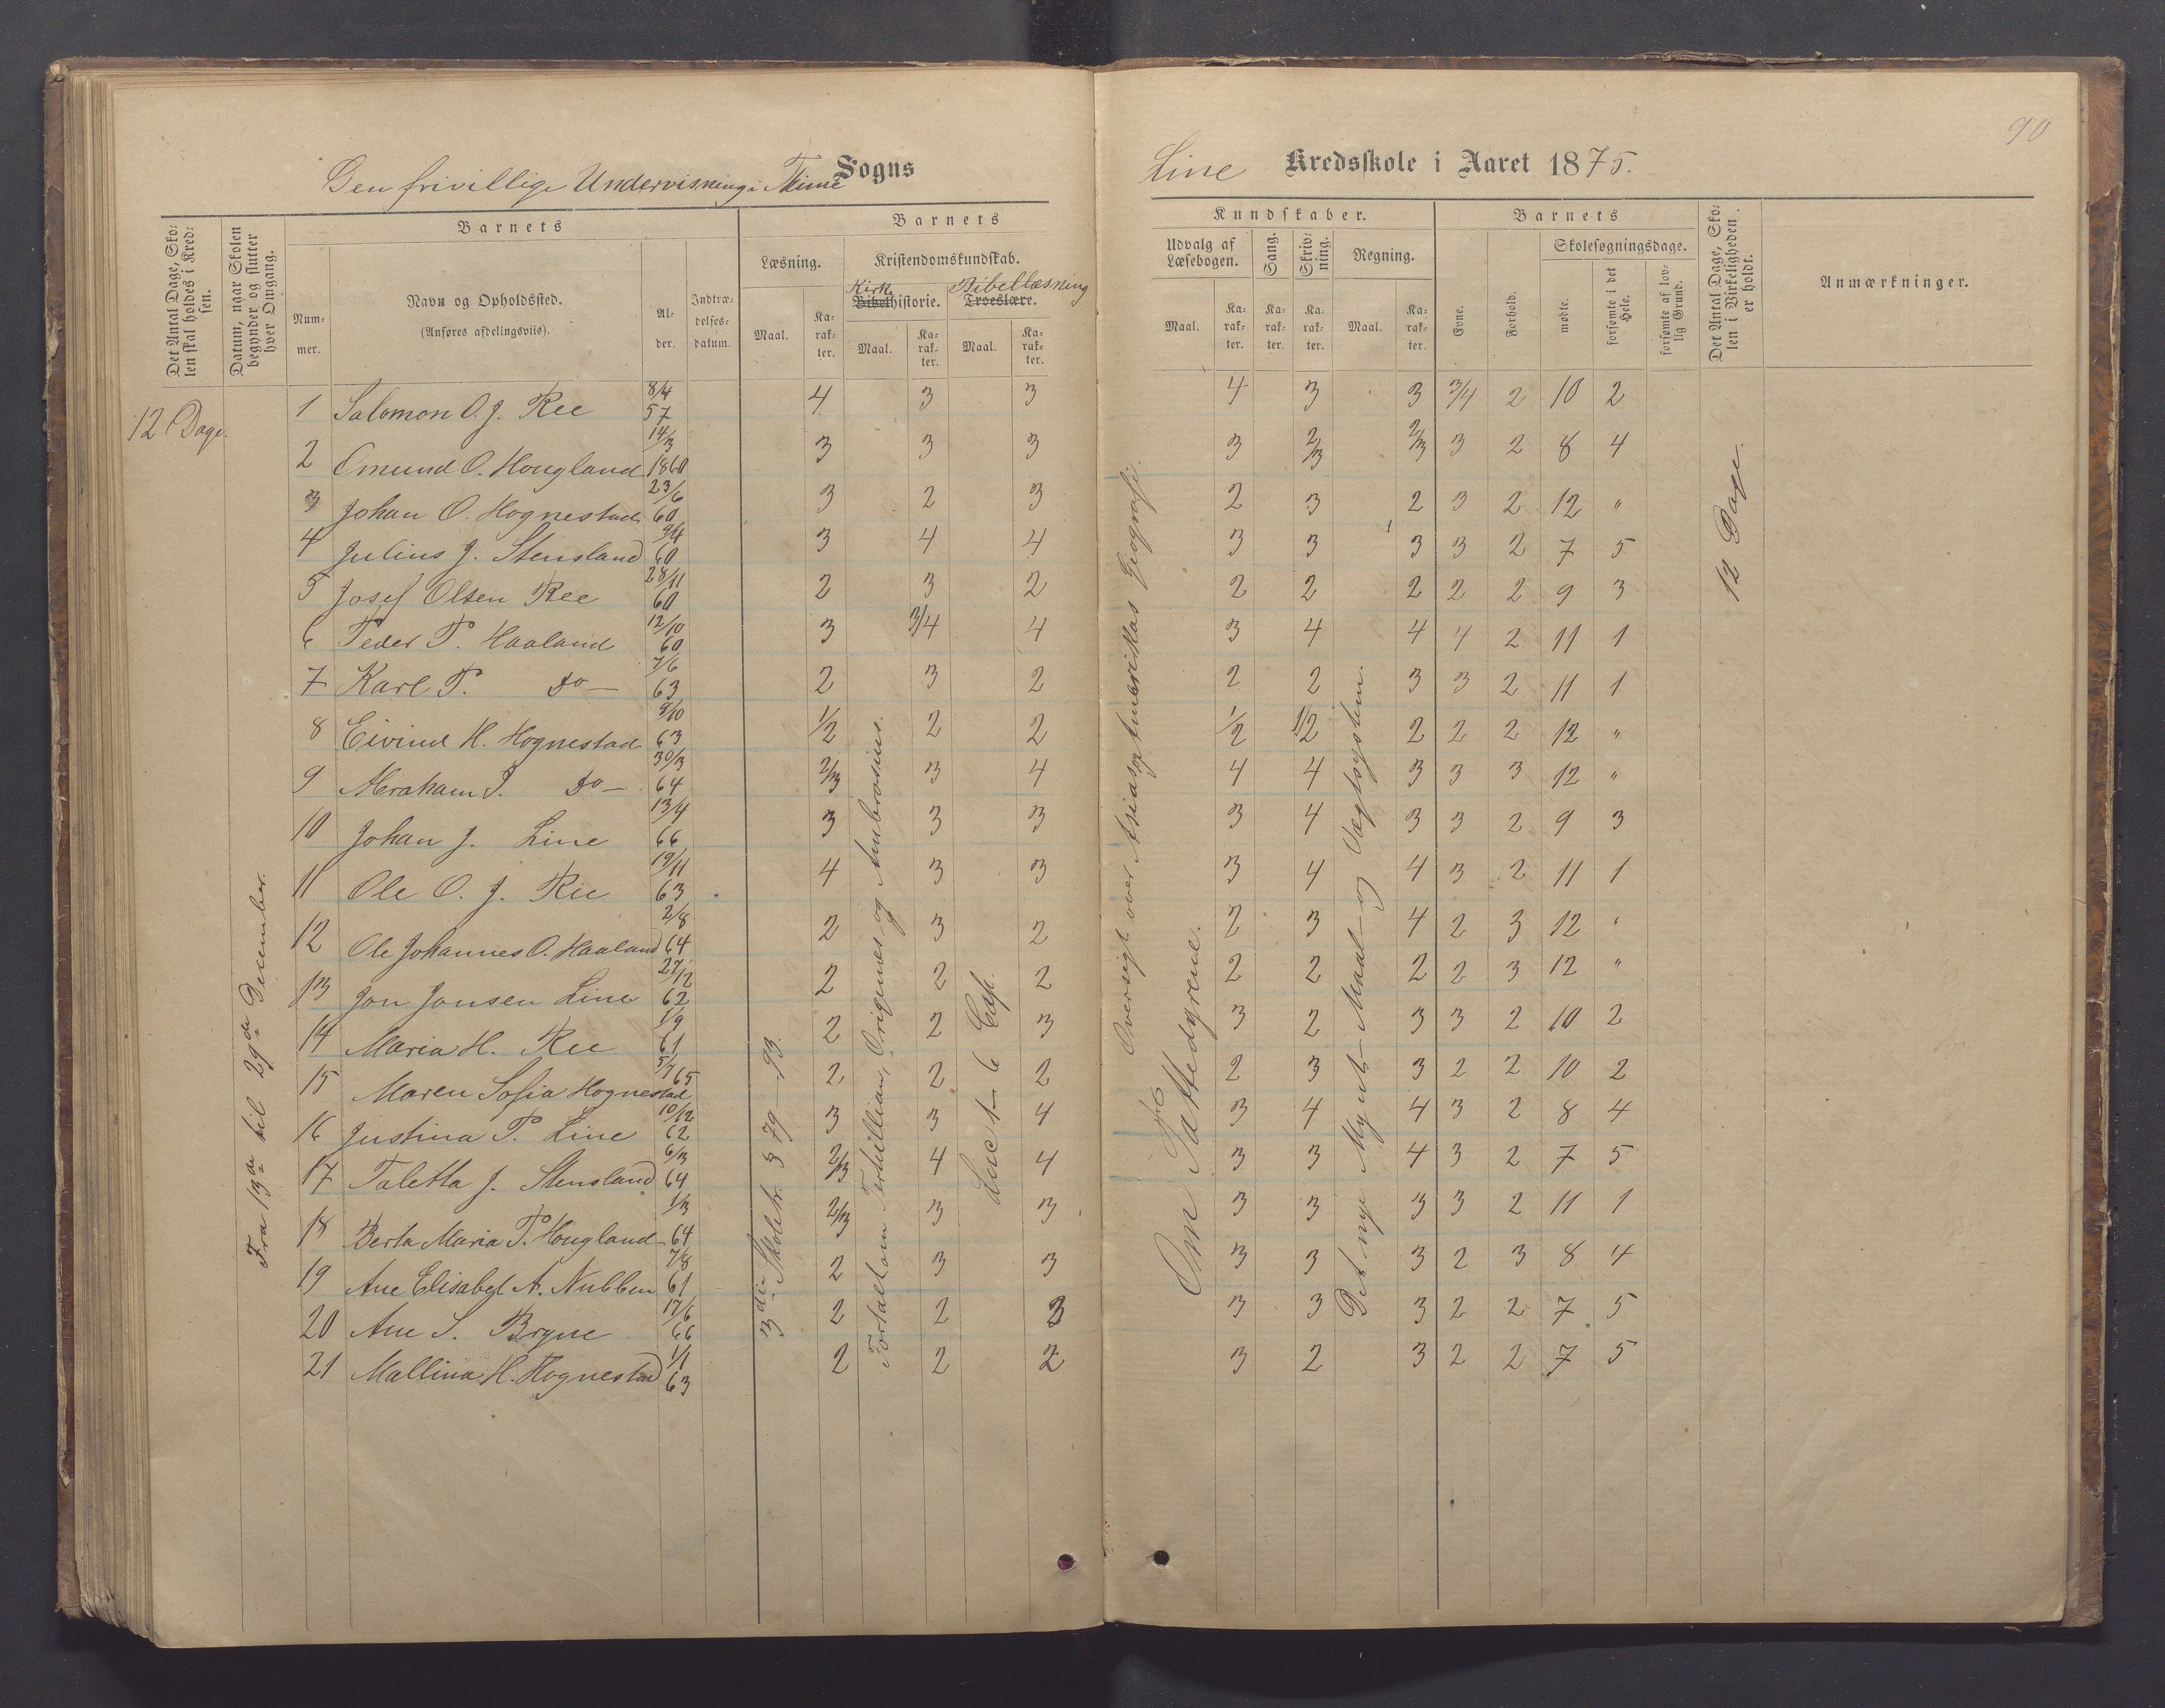 90
Den frivillige Undervisning i Thime Sogns
Line Kredsskole i Aaret 1875.
Det Antal Dage, Sko-
len skal holdes i Kred-
sen.
Datum, naar Skolen
begynder og slutter
hver Omgang.
Barnets
Num-
mer.
Navn og Opholdssted.
(Anføres afdelingsviis).
Al-
der.
Indtræ-
delses-
datum.
Barnets
Læsning.
Kristendomskundskab.
Kirke Bibelhistorie.
Bibellæsning Troeslære.
Maal.
Ka-
rak-
ter.
Maal.
Ka-
rak-
ter.
Maal.
Ka-
rak-
ter.
Kundskaber.
Udvalg af
Læsebogen.
Sang.
Skriv-
ning.
Regning.
Maal.
Ka-
rak-
ter.
Ka-
rak-
ter.
Ka-
rak-
ter.
Maal.
Ka-
rak-
ter.
Barnets
Evne.
Forhold.
Skolesøgningsdage.
mødte.
forsømte i det
Hele.
forsømte af lov-
lig Grund.
Det Antal Dage, Sko-
len i Virkeligheden
er holdt.
Anmærkninger.
12 Dage.
Fra 13de til 29de December.
3die Skoletr. 79 - 93.
Fortalt om Tertullian, Origenes og Ambrosius.
Luc 1-6 Cap.
Oversigt over Asias og Amerikas Geografi.
Om Pattedyrene.
Det nye Mynt- Maal- og Vægtsystem.
12 Dage.
1 Salomon O. J. Ree 8/4 57 4 3 3 4 3 3 3/4 2 10 2
2 Emund O. Hougland 14/3 1860 3 3 3 3 2/3 2/3 3 2 8 4
3 Johan O. Hognestad 23/6 60 3 2 3 2 3 2 3 2 12 "
4 Julius J. Stensland 9/4 60 3 4 4 3 3 3 3 2 7 5
5 Josef Olsen Ree 28/11 60 2 3 2 2 2 2 2 2 9 3
6 Peder P. Haaland 12/10 60 3 3/4 4 3 4 4 4 2 11 1
7 Karl P. Do — 7/6 63 2 3 2 2 2 3 3 2 11 1
8 Eivind H. Hognestad 9/10 63 1/2 2 2 1/2 1/2 2 2 2 12 "
9 Abraham J. Do — 30/3 64 2/3 3 4 4 4 3 3 3 12 "
10 Johan J. Line 13/4 66 3 3 3 3 4 3 3 2 9 3
11 Ole O. J. Ree 19/11 63 4 3 3 3 4 4 3 2 11 1
12 Ole Johannes O. Haaland 2/8 64 2 3 2 2 3 4 2 3 12 "
13 Jon Jonsen Line 27/12 62 2 2 2 2 2 2 2 3 12 "
14 Maria H. Ree 1/9 61 2 2 3 3 2 3 3 2 10 2
15 Maren Sofia Hognestad 5/7 65 2 2 2 2 3 3 2 2 10 2
16 Justina P. Line 10/12 62 3 3 4 3 4 4 3 2 8 4
17 Taletta J. Stensland 6/3 64 2/3 4 4 3 3 4 3 2 7 5
18 Berta Maria P. Hougland 1/3 64 2/3 3 3 3 3 3 3 2 11 1
19 Ane Elisabet A. Nubben 7/8 61 2 3 3 3 3 3 2 3 8 4
20 Ane S. Bryne 17/6 66 2 2 3 3 3 3 2 2 7 5
21 Mallina H. Hognestad 1/1 63 2 2 2 3 2 3 2 2 7 5